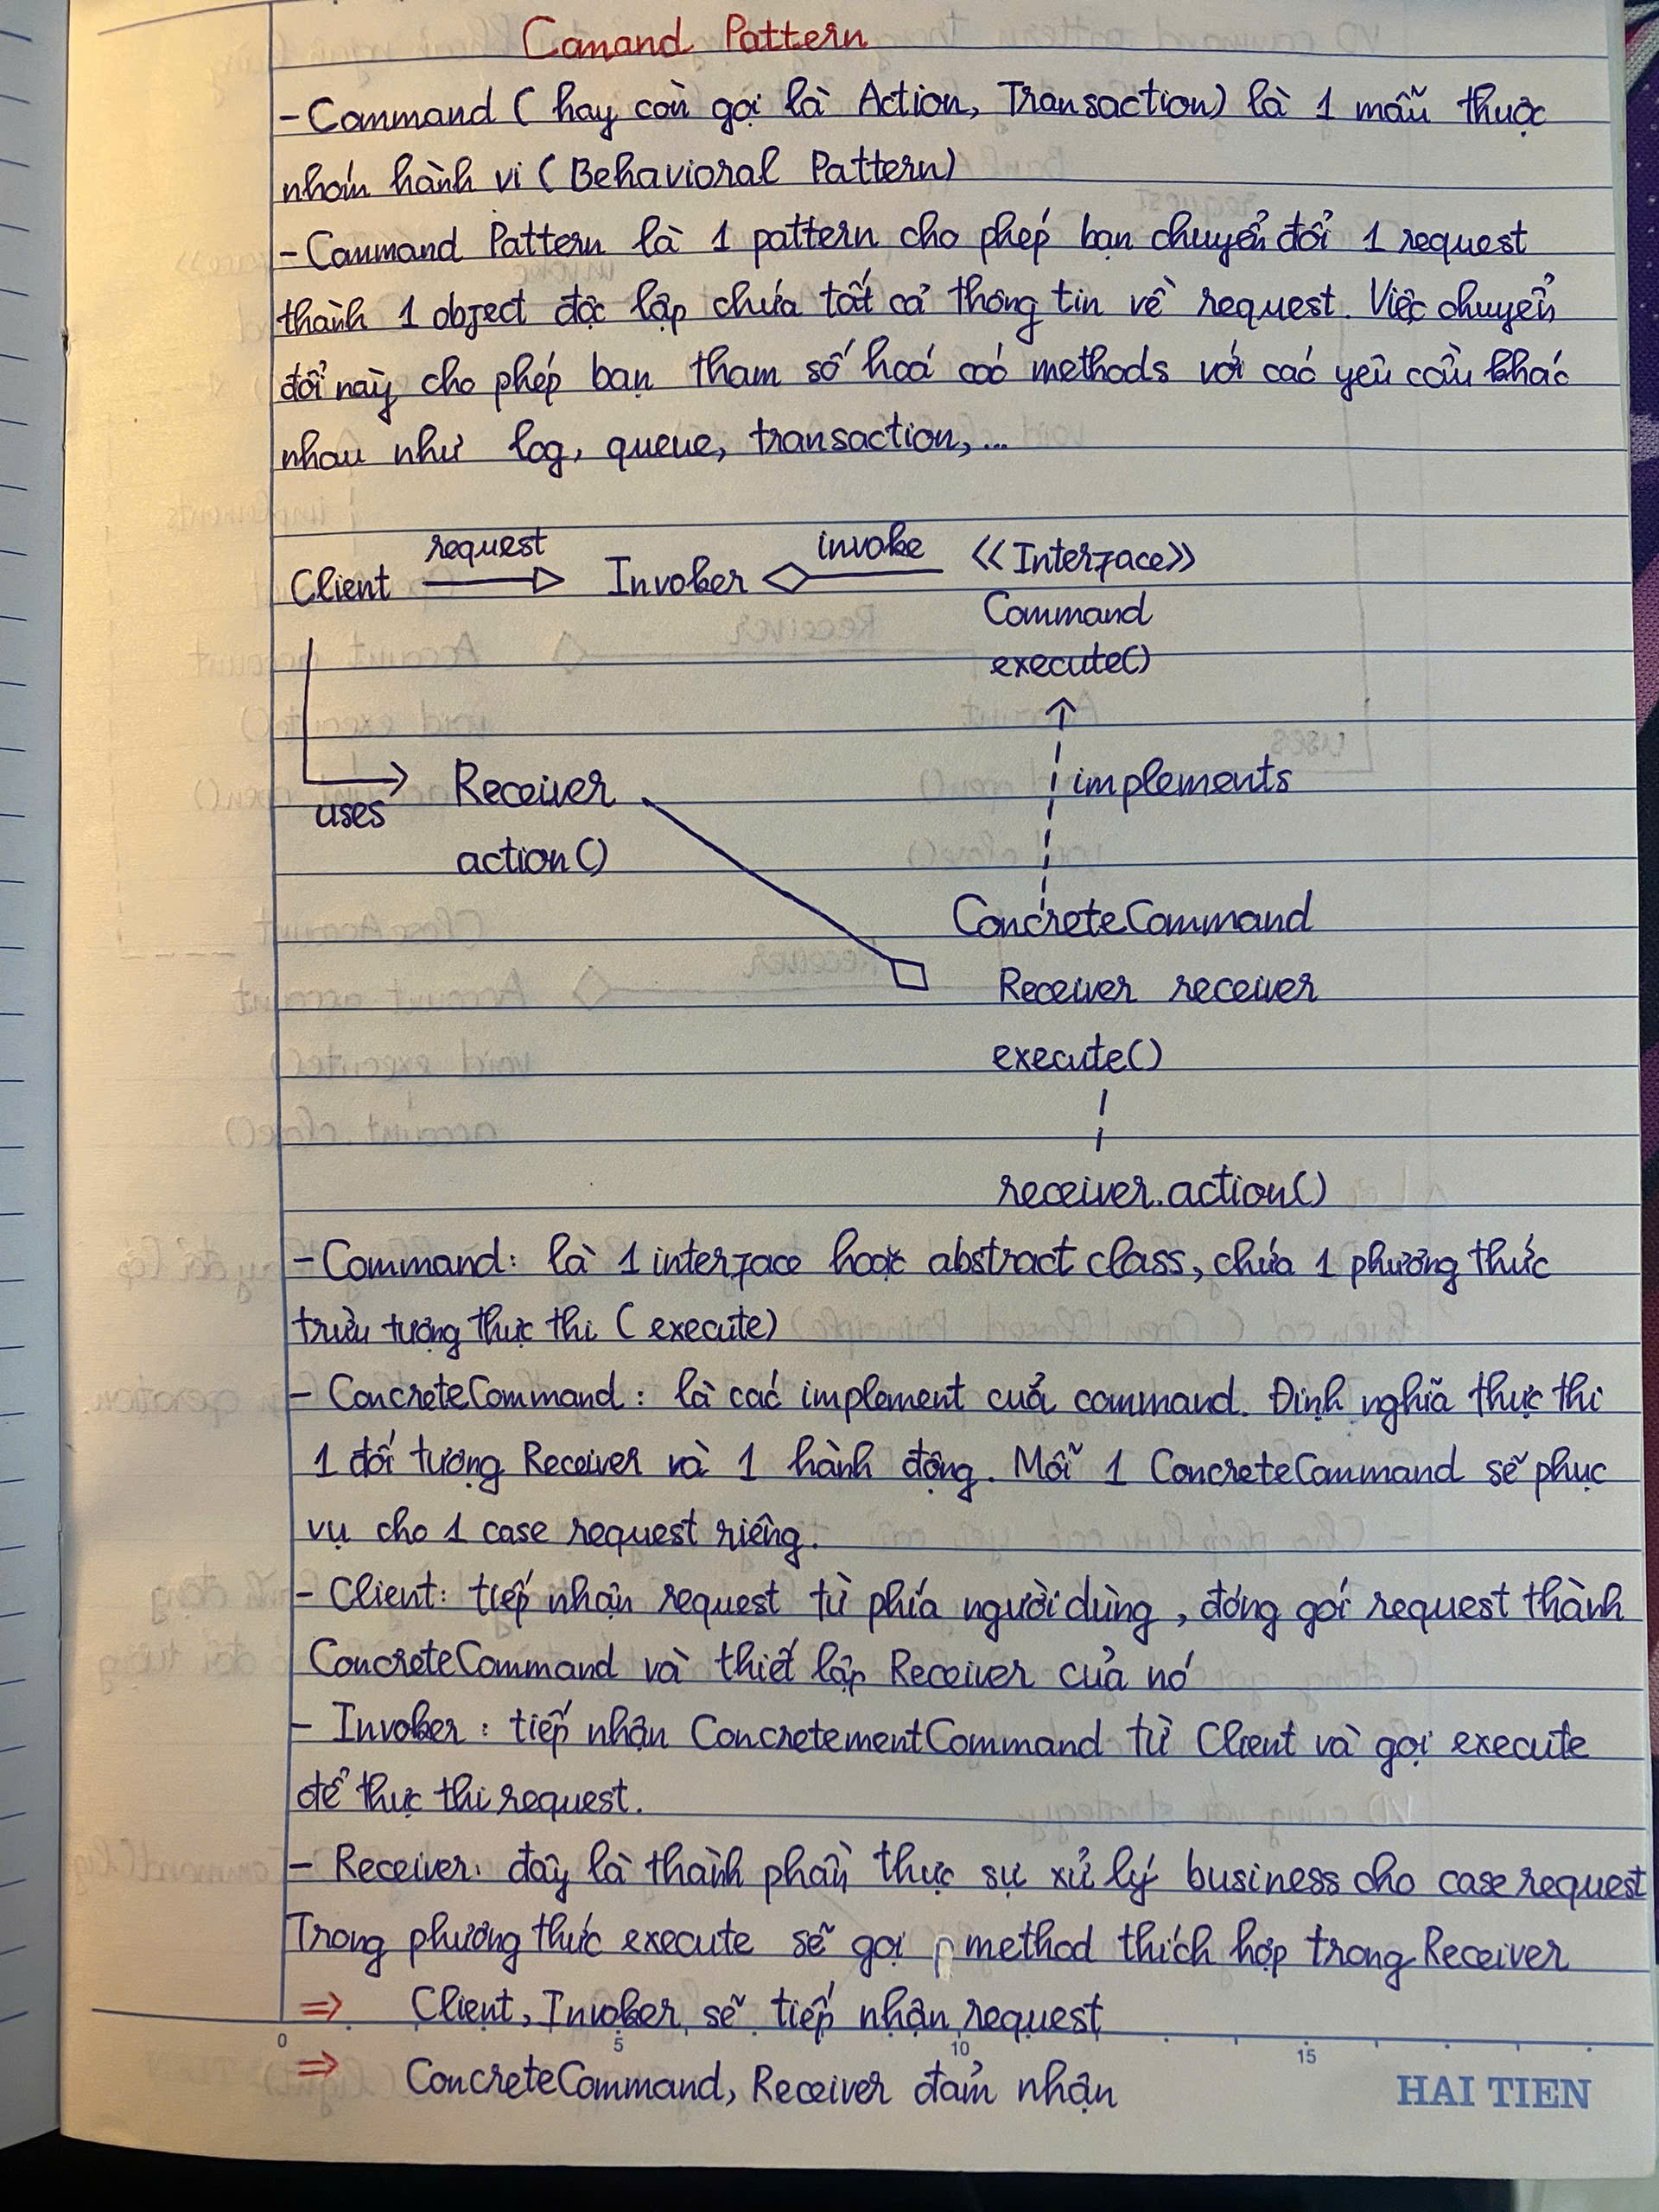 Comand Pattern
- Command (hay còn gọi là Action, Transaction) là 1 mẫu thuộc
nhóm hành vi (Behavioral Pattern)
- Command Pattern là 1 pattern cho phép bạn chuyển đổi 1 request
thành 1 object độc lập chứa tất cả thông tin về request. Việc chuyển
đổi này cho phép bạn tham số hoá các methods với các yêu cầu khác
nhau như log, queue, transaction,...
request invoke
Client Invoker <<Interface>>
Command
execute()
uses Receiver implements
action()
ConcreteCommand
Receiver receiver
execute()
receiver.action()
- Command: là 1 interface hoặc abstract class, chứa 1 phương thức
trừu tượng thực thi (execute)
- ConcreteCommand: là các implement của command. Định nghĩa thực thi
1 đối tượng Receiver và 1 hành động. Mỗi 1 ConcreteCommand sẽ phục
vụ cho 1 case request riêng.
- Client: tiếp nhận request từ phía người dùng, đóng gói request thành
ConcreteCommand và thiết lập Receiver của nó
- Invoker: tiếp nhận ConcretementCommand từ Client và gọi execute
để thực thi request.
- Receiver: đây là thành phần thực sự xử lý business cho case request
Trong phương thức execute sẽ gọi method thích hợp trong Receiver
=> Client, Invoker sẽ tiếp nhận request
0 5 10 15
=> ConcreteCommand, Receiver đảm nhận
HAI TIEN